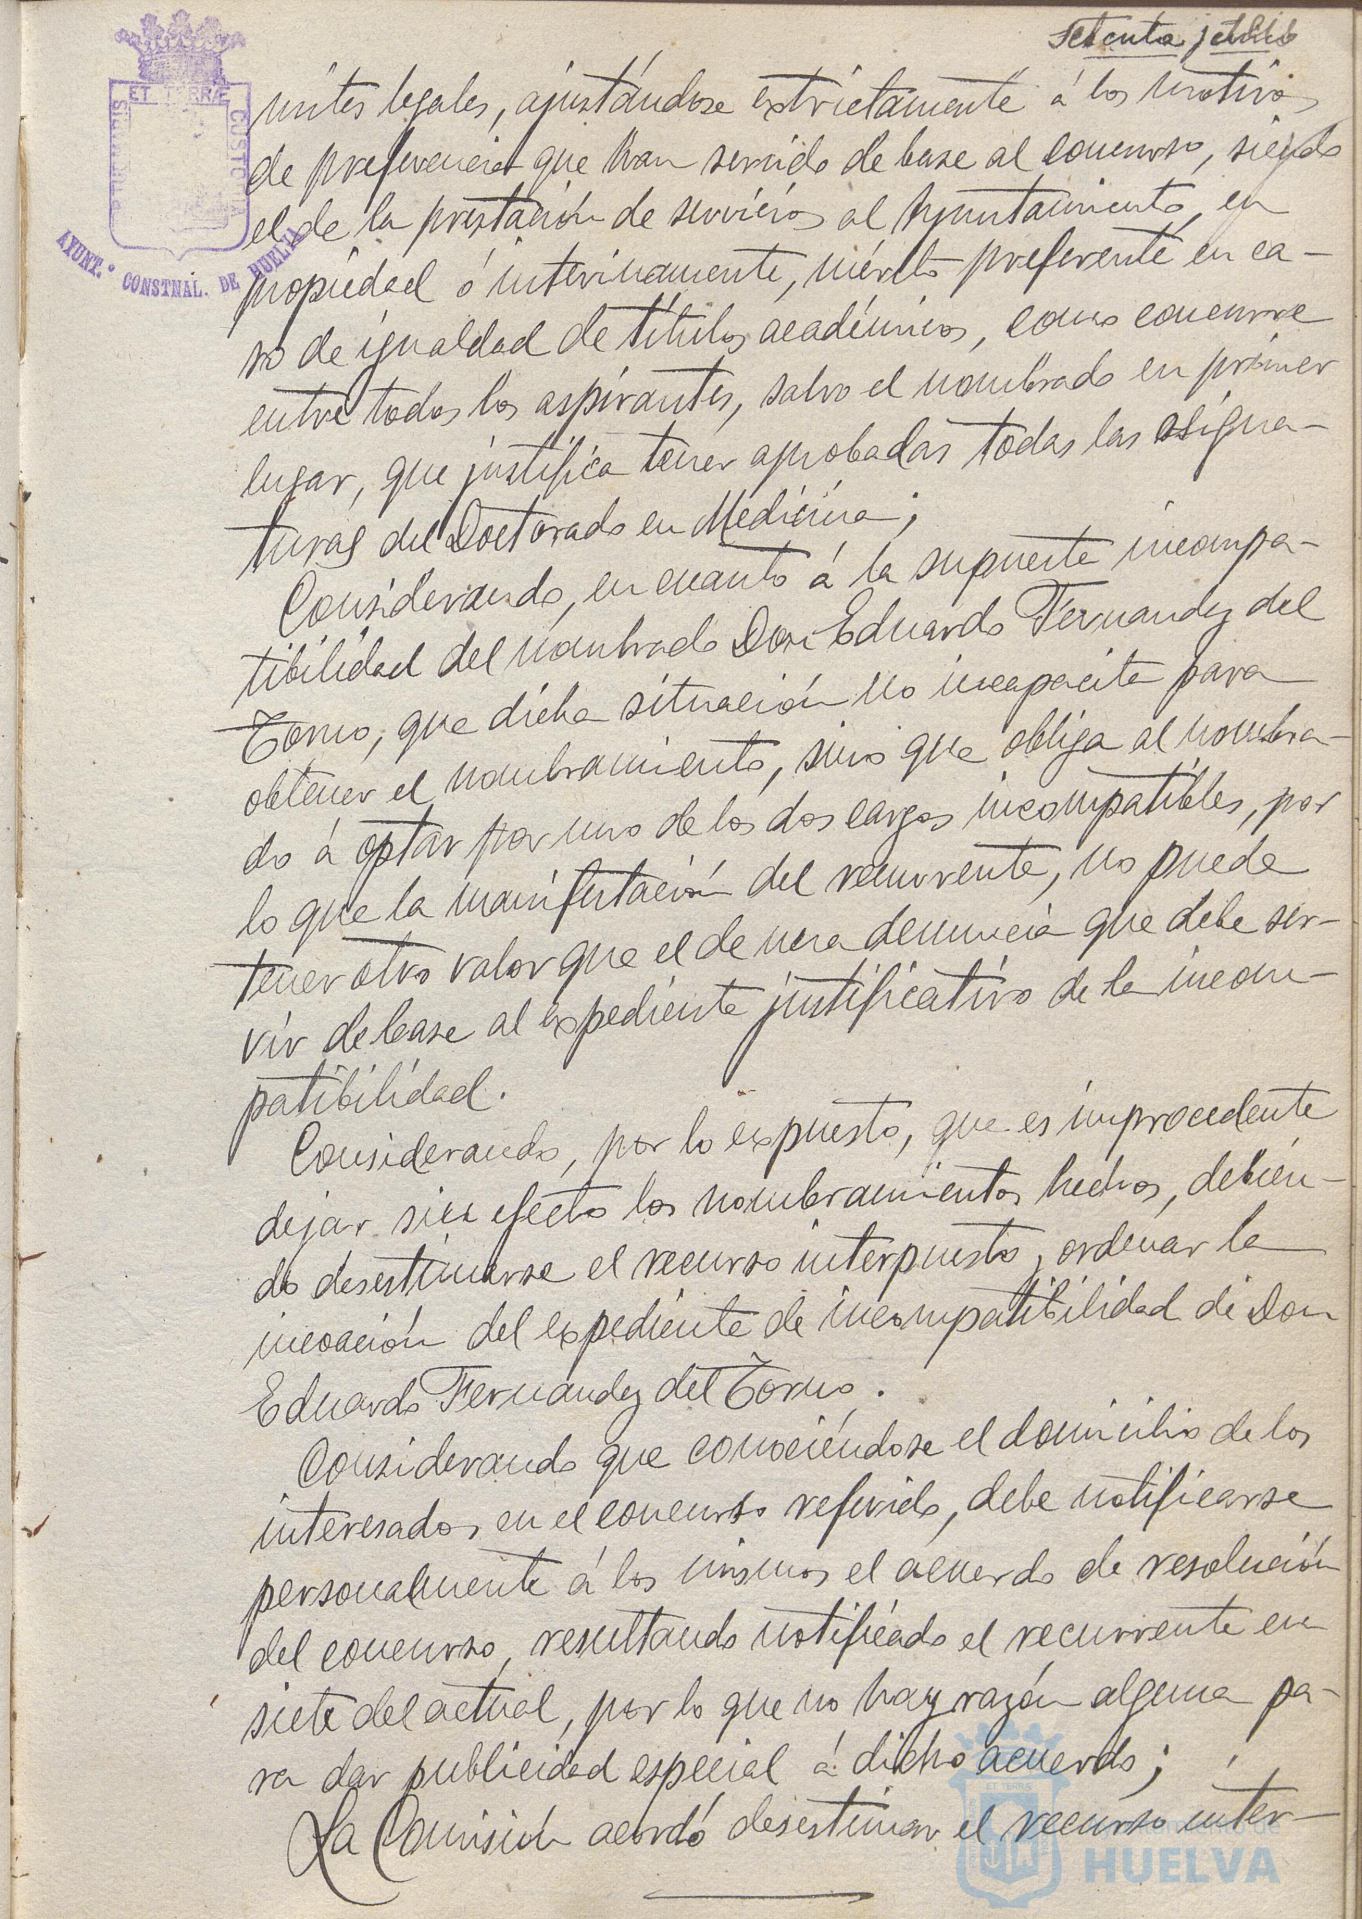 Setenta y
ET TERRÆ
CUSTODIA
AYUNT.º CONSTNAL. DE HUELVA
mites legales, ajustándose extrictamente á los motivos
de preferencia que han servido de base al concurso, siendo
el de la prestación de servicios al Ayuntamiento, en
propiedad ó interinamente, mérito preferente en ca-
so de igualdad de títulos académicos, como concurre
entre todos los aspirantes, salvo el nombrado en primer
lugar, que justifica tener aprobadas todas las asigna-
turas del Doctorado en Medicina;
Considerando, en cuanto á la supuesta incompa-
tibilidad del nombrado Don Eduardo Fernandez del
Torno, que dicha situación no incapacita para
obtener el nombramiento, sino que obliga al nombra-
do á optar por uno de los dos cargos incompatibles, por
lo que la manifestación del recurrente, no puede
tener otro valor que el de una denuncia que debe ser-
vir de base al expediente justificativo de la incom-
patibilidad.
Considerando, por lo expuesto, que es improcedente
dejar sin efecto los nombramientos hechos, debién-
do desestimarse el recurso interpuesto y ordenar la
incoación del expediente de incompatibilidad de Don
Eduardo Fernandez del Torno.
Considerando que conociéndose el domicilio de los
interesados en el concurso referido, debe notificarse
personalmente á los mismos el acuerdo de resolución
del concurso, resultando notificado el recurrente en
siete del actual, por lo que no hay razón alguna pa-
ra dar publicidad especial á dicho acuerdo;
La Comisión acordó desestimar el recurso inter-
HUELVA